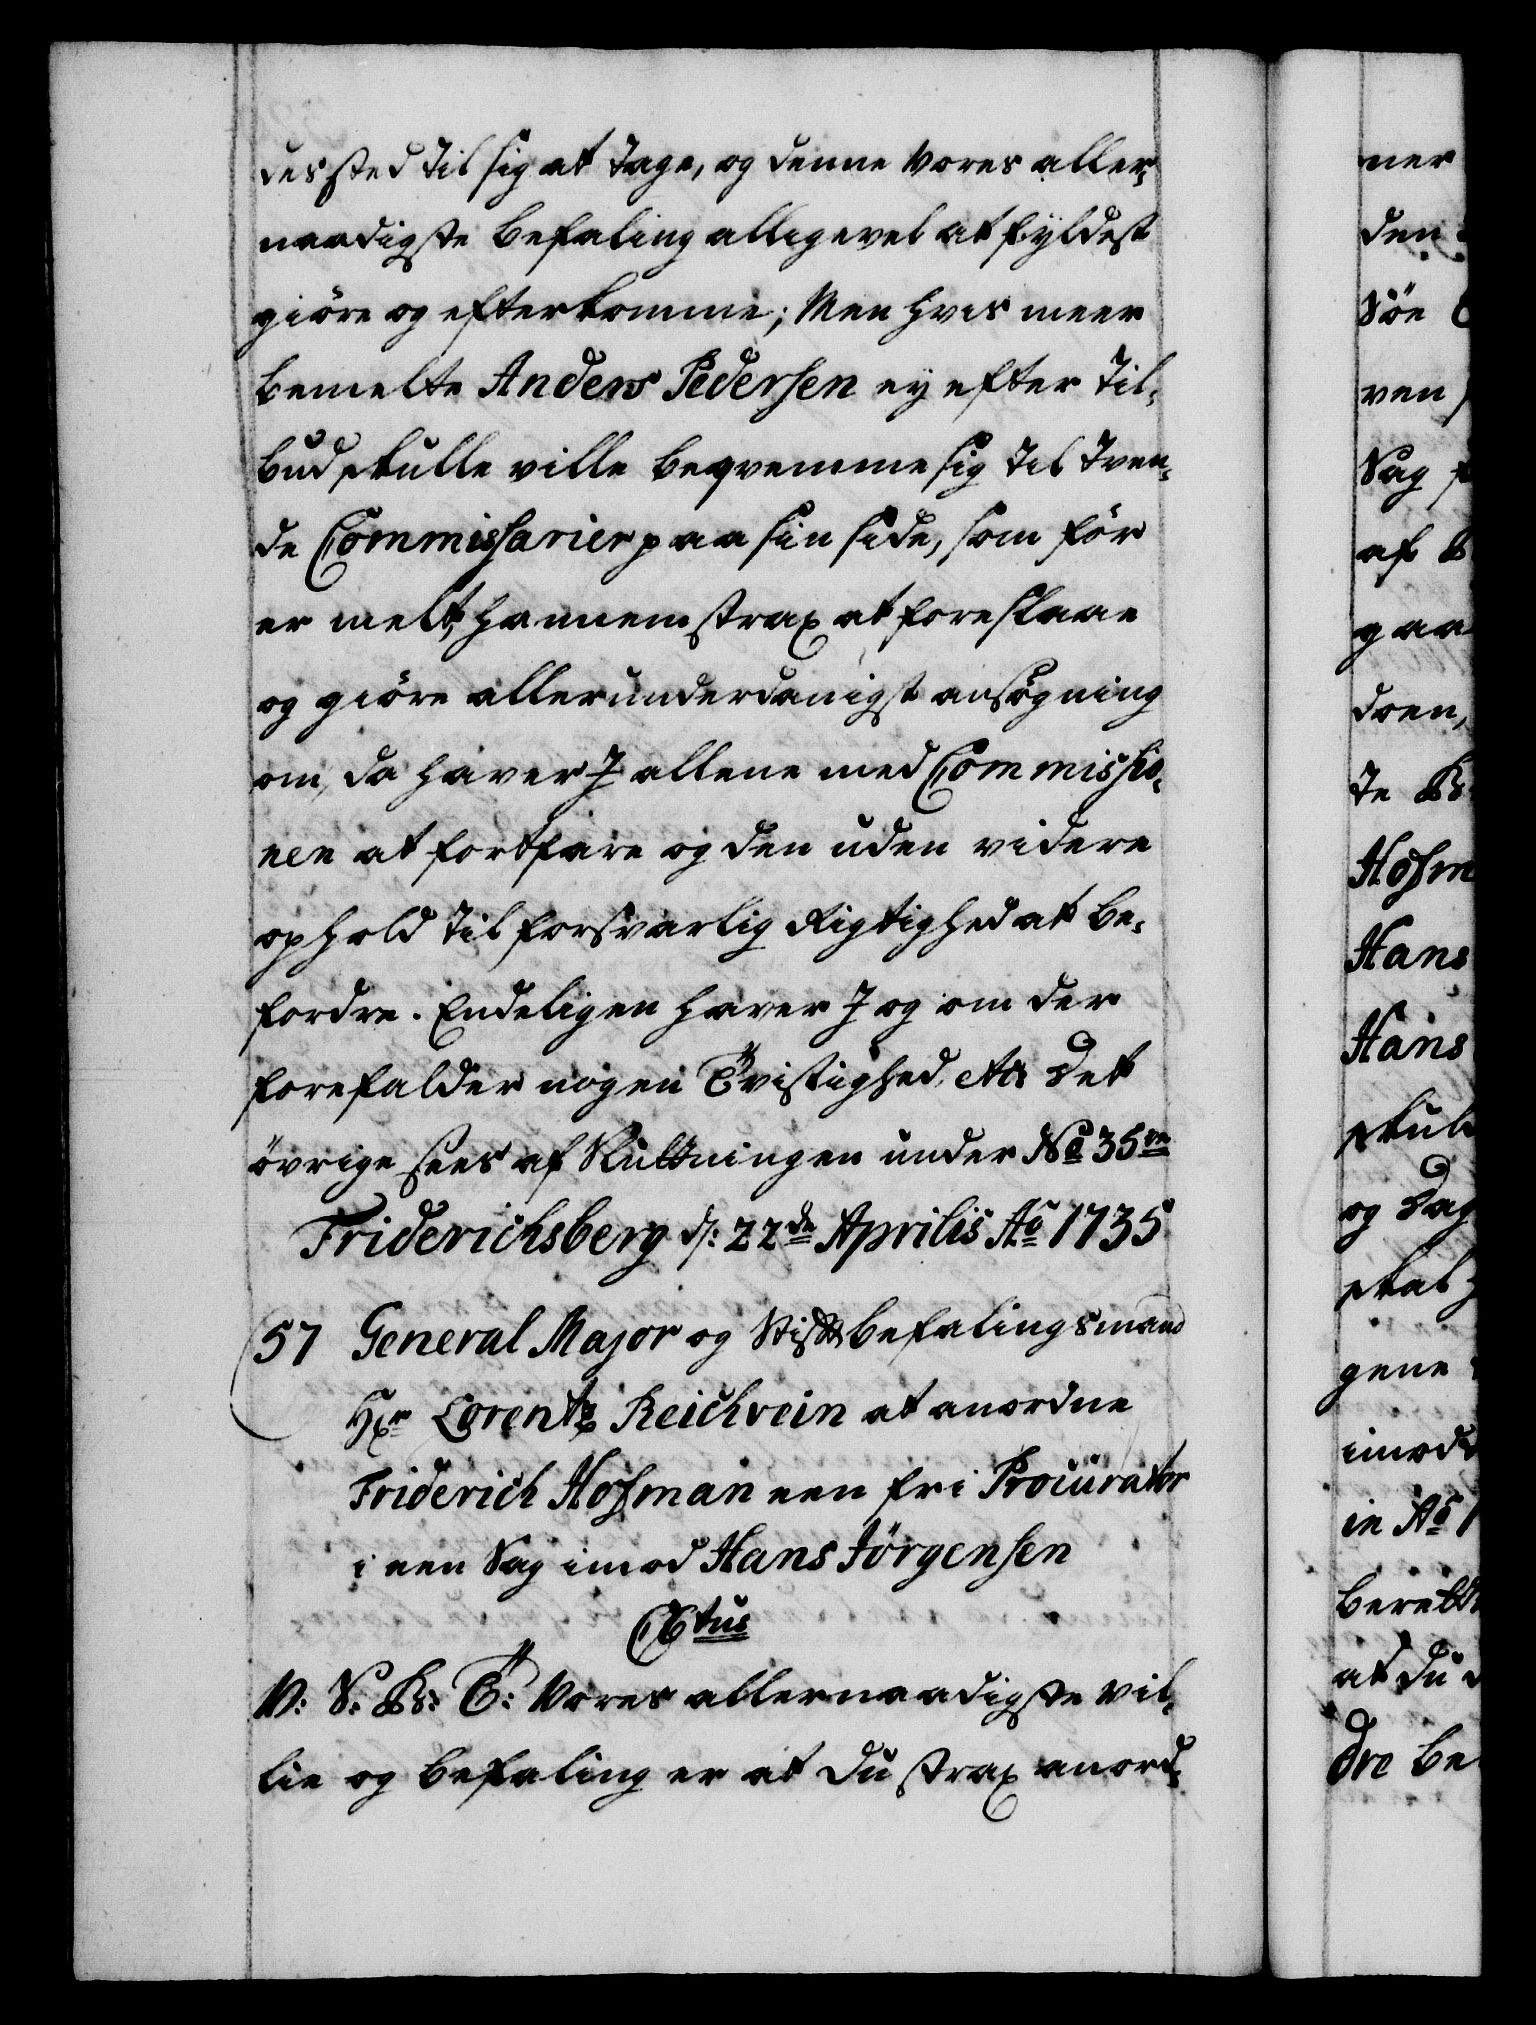 des sted til sig at tage, og denne Vores aller-
naadigste befaling alligevel at fyldest
giöre og efterkomme; Men hvis meer
bemelte Anders Pedersen ey efter til-
bud skulle ville beqvemme sig til tven-
de Commissarier paa sin side, som för
er melt, hannem strax at foreslaae
og giöre allerunderdanigst ansögning
om, da haver I allene med Commissio-
nen at fortfare og den uden videre
ophold til forsvarlig Rigtighed at be-
fordre. Endeligen haver I og om der
forefalder nogen Tvistighed etc det
övrige sees af Slutningen under No 35ve
Friderichsberg d: 22de Aprilis Ao 1735
57 General Major og Stiftbefalingsmand
Hr Lorentz Reichvein at anordne
Friderich Hofman een fri Procurator
i een Sag imod Hans Jörgensen
C6tus
V: S: G: T: Vores allernaadigste vil-
lie og befaling er at du strax anord-
ner
den
Söe
ven
Sag
af
gaa
doen,
te
Hofm
Hans
Hans
skul
og dag
skal
gene
imod
in Ao 1
berett
at du
dre be